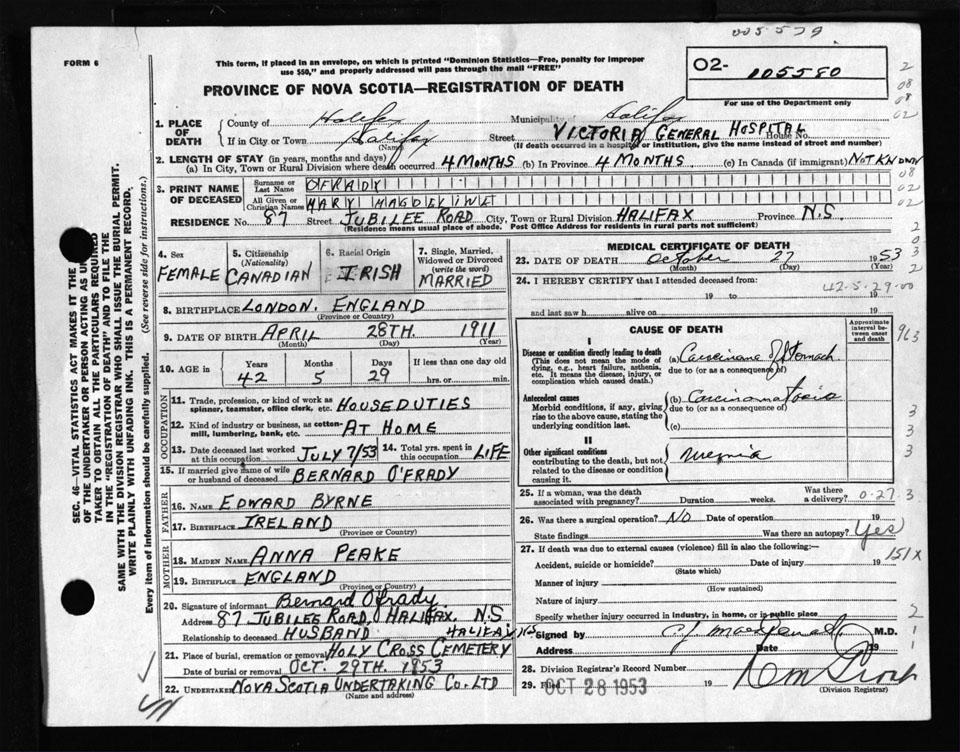 005579
FORM 6
This form, if placed in an envelope, on which is printed "Dominion Statistics—Free, penalty for improper
use $50," and properly addressed will pass through the mail "FREE"
PROVINCE OF NOVA SCOTIA—REGISTRATION OF DEATH
02- 105580
For use of the Department only
2
08
08
02
1. PLACE OF DEATH County of Halifax Municipality of Halifax
If in City or Town Halifax (Name) Street VICTORIA GENERAL HOSPITAL House No.
(If death occurred in a hospital or institution, give the name instead of street and number)
2. LENGTH OF STAY (in years, months and days)
(a) In City, Town or Rural Division where death occurred 4 MONTHS (b) In Province 4 MONTHS (c) In Canada (if immigrant) NOT KNOWN
08
02
02
3. PRINT NAME OF DECEASED Surname or Last Name OFRADY
All Given or Christian Names MARY MAGDELINE
RESIDENCE No. 87 Street JUBILEE ROAD City, Town or Rural Division HALIFAX Province N.S.
(Residence means usual place of abode. Post Office Address for residents in rural parts not sufficient)
4. Sex FEMALE
5. Citizenship (Nationality) CANADIAN
6. Racial Origin IRISH
7. Single, Married, Widowed or Divorced (write the word) MARRIED
8. BIRTHPLACE LONDON, ENGLAND
(Province or Country)
9. DATE OF BIRTH APRIL 28TH. 1911
(Month) (Day) (Year)
10. AGE in Years 42 Months 5 Days 29 If less than one day old hrs. or min.
OCCUPATION
11. Trade, profession, or kind of work as spinner, teamster, office clerk, etc. HOUSEDUTIES
12. Kind of industry or business, as cotton-mill, lumbering, bank, etc. AT HOME
13. Date deceased last worked at this occupation JULY 7/53 14. Total yrs. spent in this occupation LIFE
15. If married give name of wife or husband of deceased BERNARD O'FRADY
FATHER
16. NAME EDWARD BYRNE
17. BIRTHPLACE IRELAND
(Province or Country)
MOTHER
18. MAIDEN NAME ANNA PEAKE
19. BIRTHPLACE ENGLAND
(Province or Country)
20. Signature of informant Bernard O'frady
Address 87 JUBILEE ROAD, HALIFAX, N.S
Relationship to deceased HUSBAND HALIFAX, N.S
21. Place of burial, cremation or removal HOLY CROSS CEMETERY
Date of burial or removal OCT. 29TH. 1953
22. UNDERTAKER NOVA SCOTIA UNDERTAKING CO. LTD
(Name and address)
MEDICAL CERTIFICATE OF DEATH
23. DATE OF DEATH October 27 1953
(Month) (Day) (Year)
24. I HEREBY CERTIFY that I attended deceased from:
42-5-29-00
19 to 19
and last saw h alive on 19
CAUSE OF DEATH
Approximate interval between onset and death
963
I
Disease or condition directly leading to death (a) Carcinoma Of Stomach
(This does not mean the mode of dying, e.g., heart failure, asthenia, etc. It means the disease, injury, or complication which caused death.) due to (or as a consequence of)
Antecedent causes (b) Carcinomatosis
Morbid conditions, if any, giving rise to the above cause, stating the underlying condition last. due to (or as a consequence of)
(c)
II
Other significant conditions Uremia
contributing to the death, but not related to the disease or condition causing it.
3
3
3
25. If a woman, was the death associated with pregnancy? Duration weeks. Was there a delivery? 0-27.3
26. Was there a surgical operation? NO Date of operation 19
State findings Was there an autopsy? Yes
27. If death was due to external causes (violence) fill in also the following:—
151X
Accident, suicide or homicide? Date of injury 19
(State which)
Manner of injury
(How sustained)
Nature of injury
Specify whether injury occurred in industry, in home, or in public place
2
1
1
Signed by M.D.
Address Date 19
28. Division Registrar's Record Number
29. Filed OCT 28 1953 19
(Division Registrar)
SEC. 46—VITAL STATISTICS ACT MAKES IT THE
OF THE UNDERTAKER OR PERSON ACTING AS UN
TAKER TO OBTAIN ALL THE PARTICULARS REQUIRED
IN THE "REGISTRATION OF DEATH" AND TO FILE THE
SAME WITH THE DIVISION REGISTRAR WHO SHALL ISSUE THE BURIAL PERMIT.
WRITE PLAINLY WITH UNFADING INK. THIS IS A PERMANENT RECORD.
Every item of information should be carefully supplied. (See reverse side for instructions.)